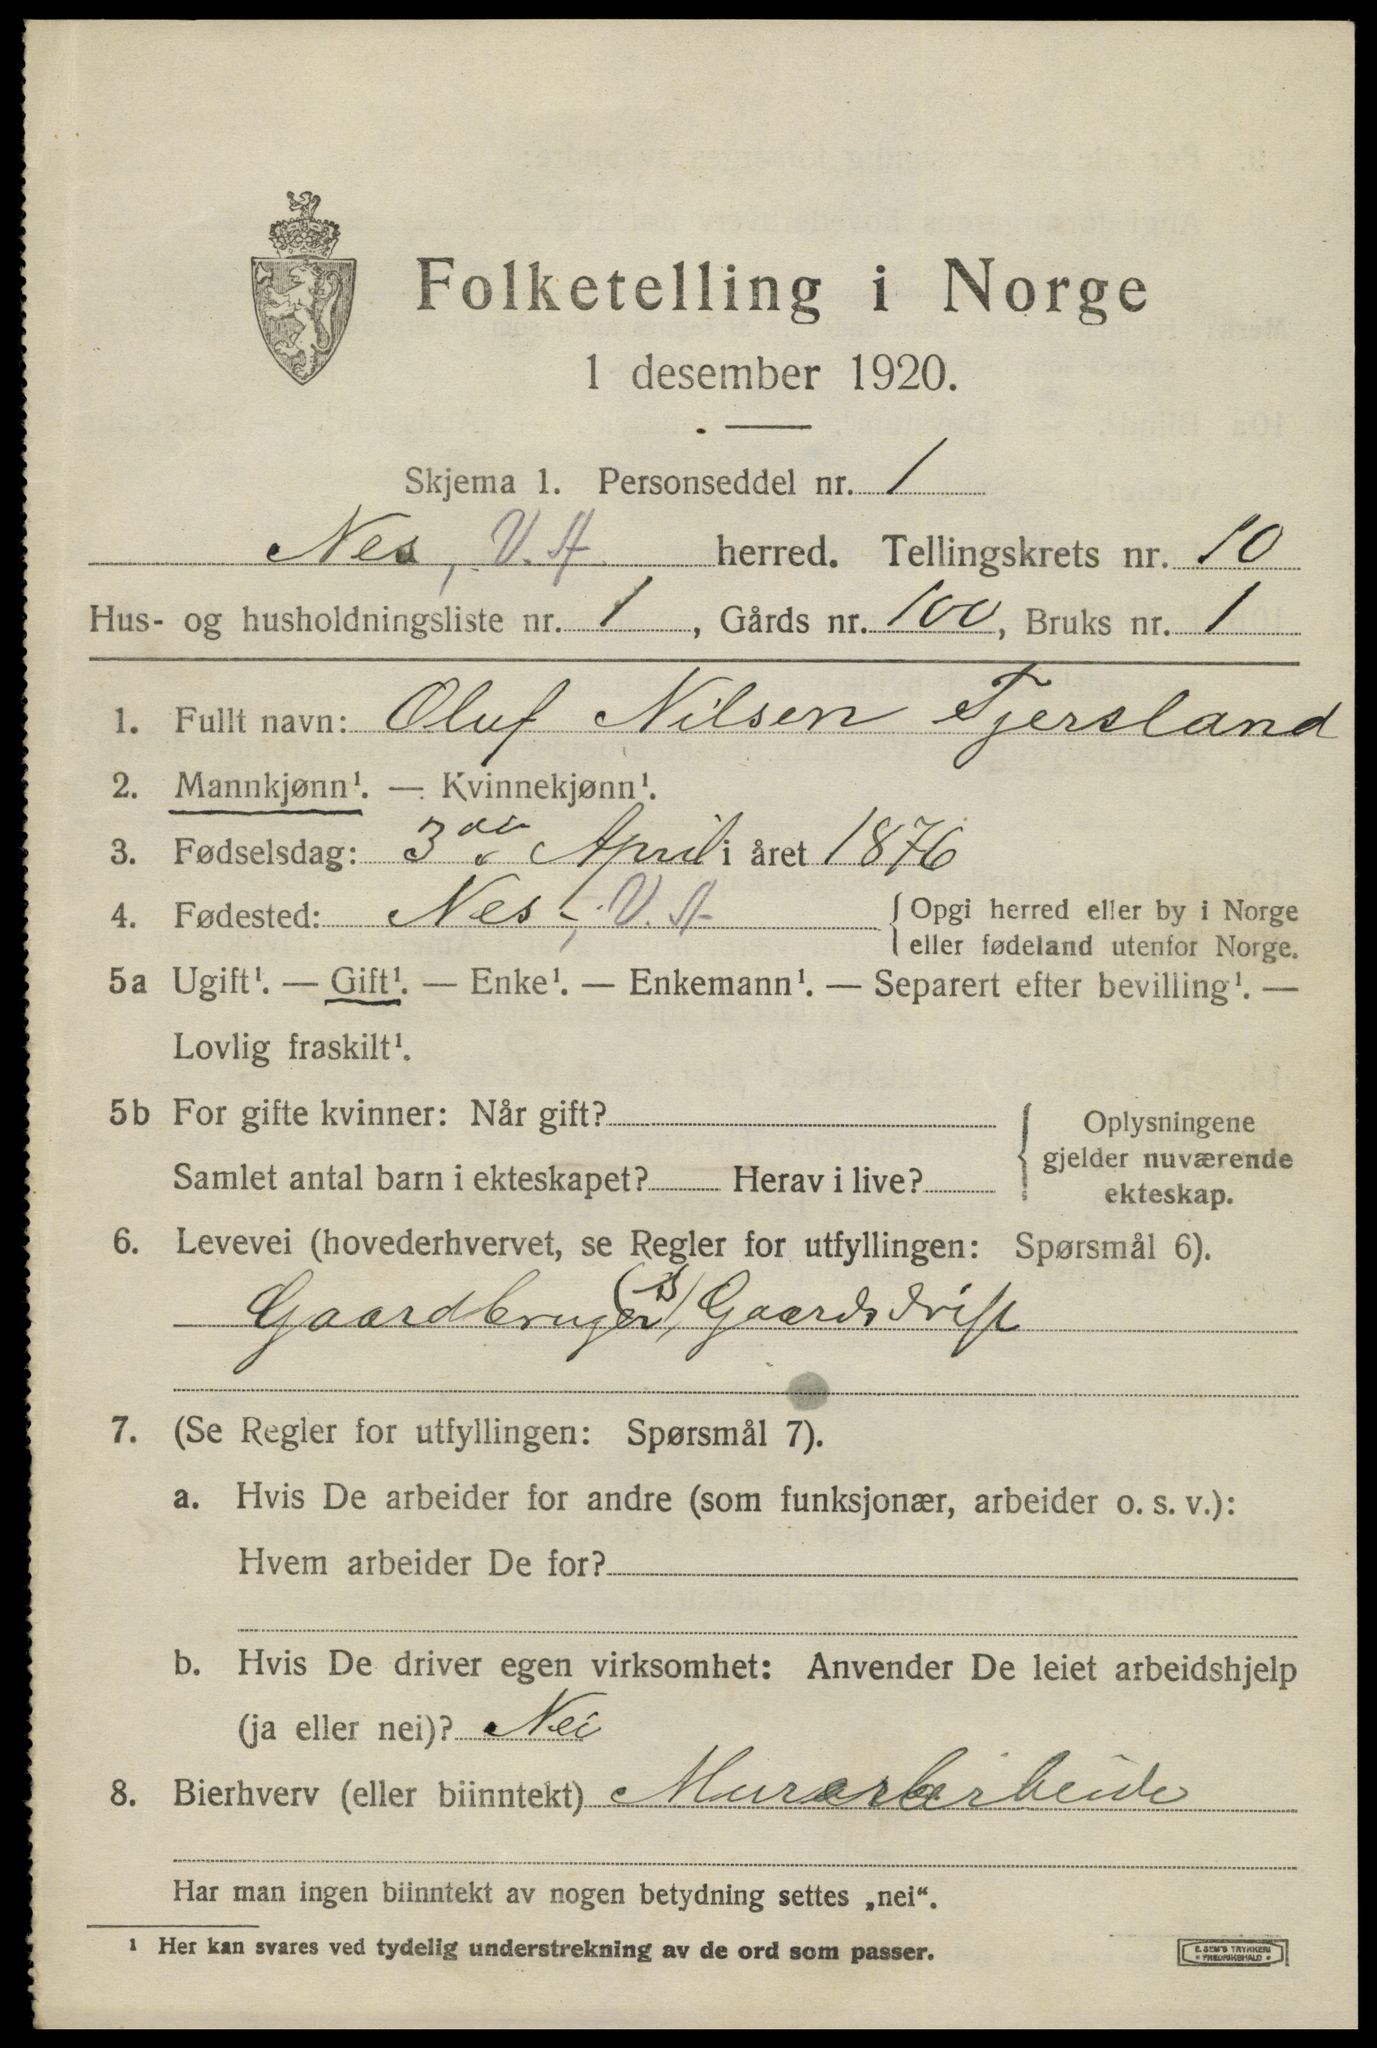 Folketelling i Norge
1 desember 1920.
Skjema 1. Personseddel nr. 1
Nes, V.A. herred. Tellingskrets nr. 10
Hus- og husholdningsliste nr. 1, Gårds nr. 100, Bruks nr. 1
1. Fullt navn: Oluf Nilsen Fjersland
2. Mannkjønn¹. — Kvinnekjønn¹.
3. Fødselsdag: 3die April i året 1876
4. Fødested: Nes, V.A. { Opgi herred eller by i Norge
eller fødeland utenfor Norge.
5a Ugift¹. — Gift¹. — Enke¹. — Enkemann¹. — Separert efter bevilling¹. —
Lovlig fraskilt¹.
5b For gifte kvinner: Når gift?
Samlet antal barn i ekteskapet? Herav i live?
{ Oplysningene
gjelder nuværende
ekteskap.
6. Levevei (hovederhvervet, se Regler for utfyllingen: Spørsmål 6).
Gaardbruger, Gaardsdrift
7. (Se Regler for utfyllingen: Spørsmål 7).
a. Hvis De arbeider for andre (som funksjonær, arbeider o. s. v.):
Hvem arbeider De for?
b. Hvis De driver egen virksomhet: Anvender De leiet arbeidshjelp
(ja eller nei)? Nei
8. Bierhverv (eller biinntekt) Murarbeide
Har man ingen biinntekt av nogen betydning settes „nei“.
¹ Her kan svares ved tydelig understrekning av de ord som passer.
E. SEM'S TRYKKERI
FREDRIKSHALD